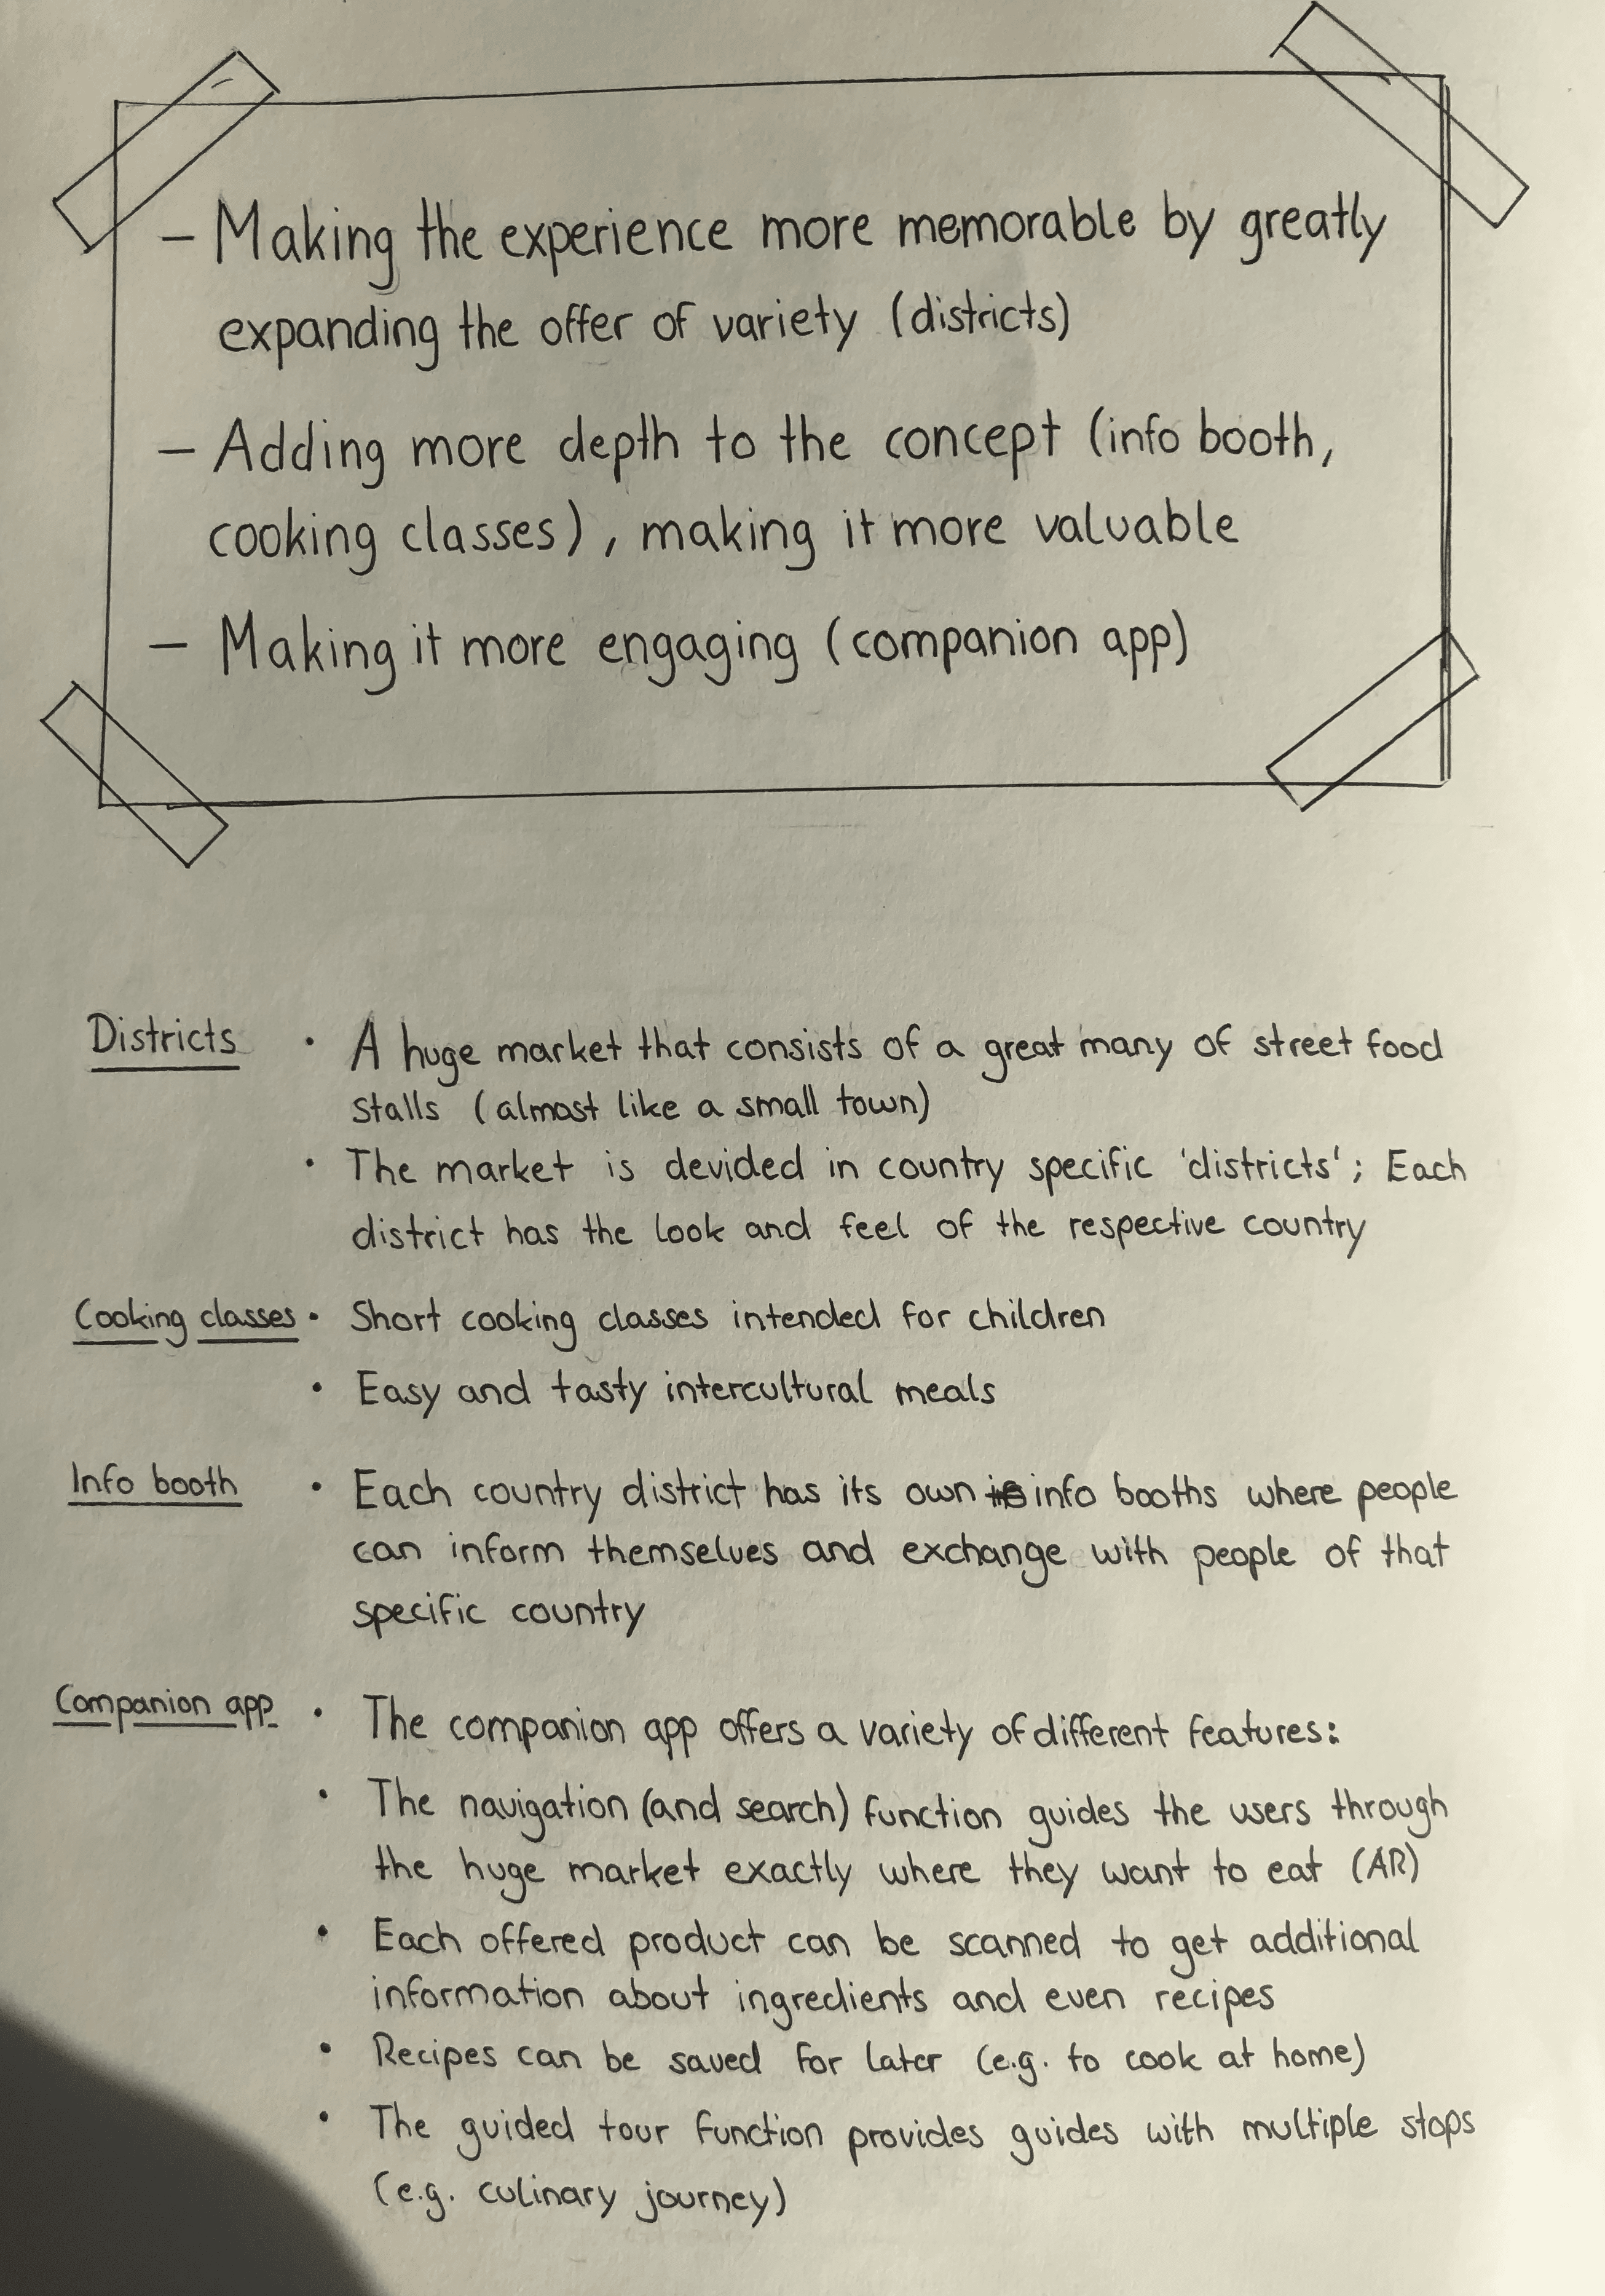 – Making the experience more memorable by greatly
expanding the offer of variety (districts)
– Adding more depth to the concept (info booth,
cooking classes), making it more valuable
– Making it more engaging (companion app)
Districts • A huge market that consists of a great many of street food
stalls (almost like a small town)
• The market is devided in country specific 'districts'; Each
district has the look and feel of the respective country
Cooking classes • Short cooking classes intended for children
• Easy and tasty intercultural meals
Info booth • Each country district has its own info booths where people
can inform themselves and exchange with people of that
specific country
Companion app • The companion app offers a variety of different features:
• The navigation (and search) function guides the users through
the huge market exactly where they want to eat (AR)
• Each offered product can be scanned to get additional
information about ingredients and even recipes
• Recipes can be saved for later (e.g. to cook at home)
• The guided tour function provides guides with multiple stops
(e.g. culinary journey)